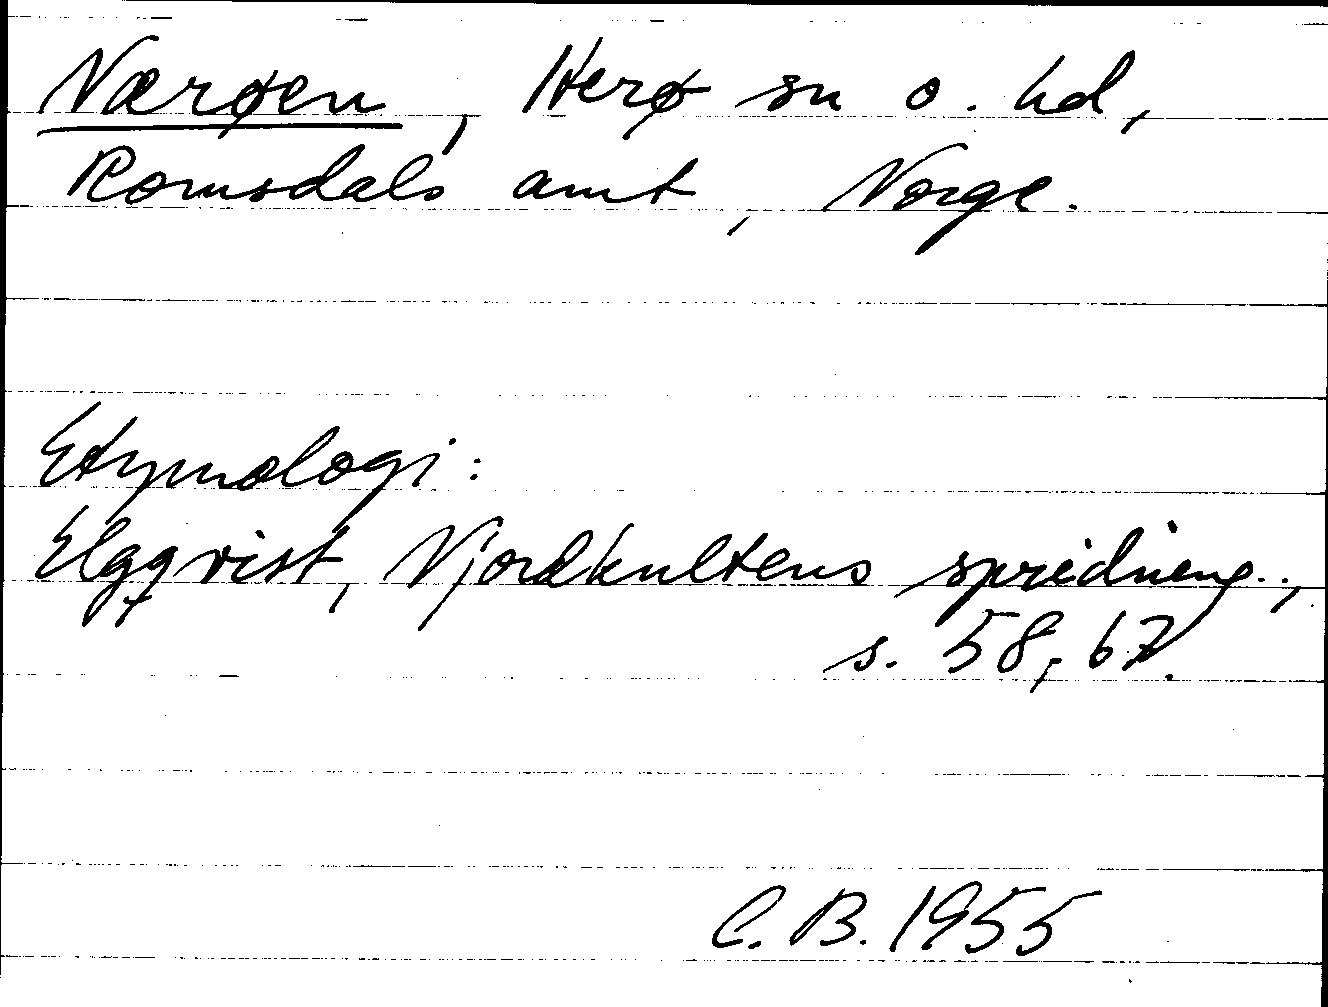 Nærøen, Herø sn o. hd,
Romsdals amt, Norge.
Etymologi:
Elgqvist, Njordkultens spridning.,
s. 58, 67.
C. B. 1955